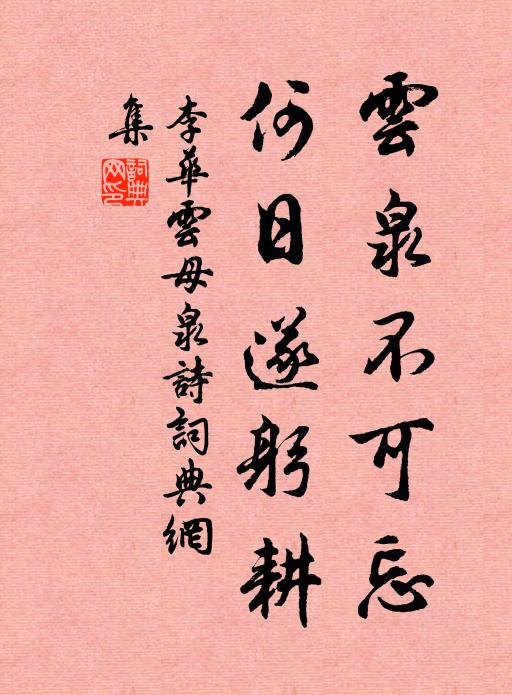 雲泉不可忘
何日遂躬耕
李華雲母泉詩詞典網
集
詞典網印